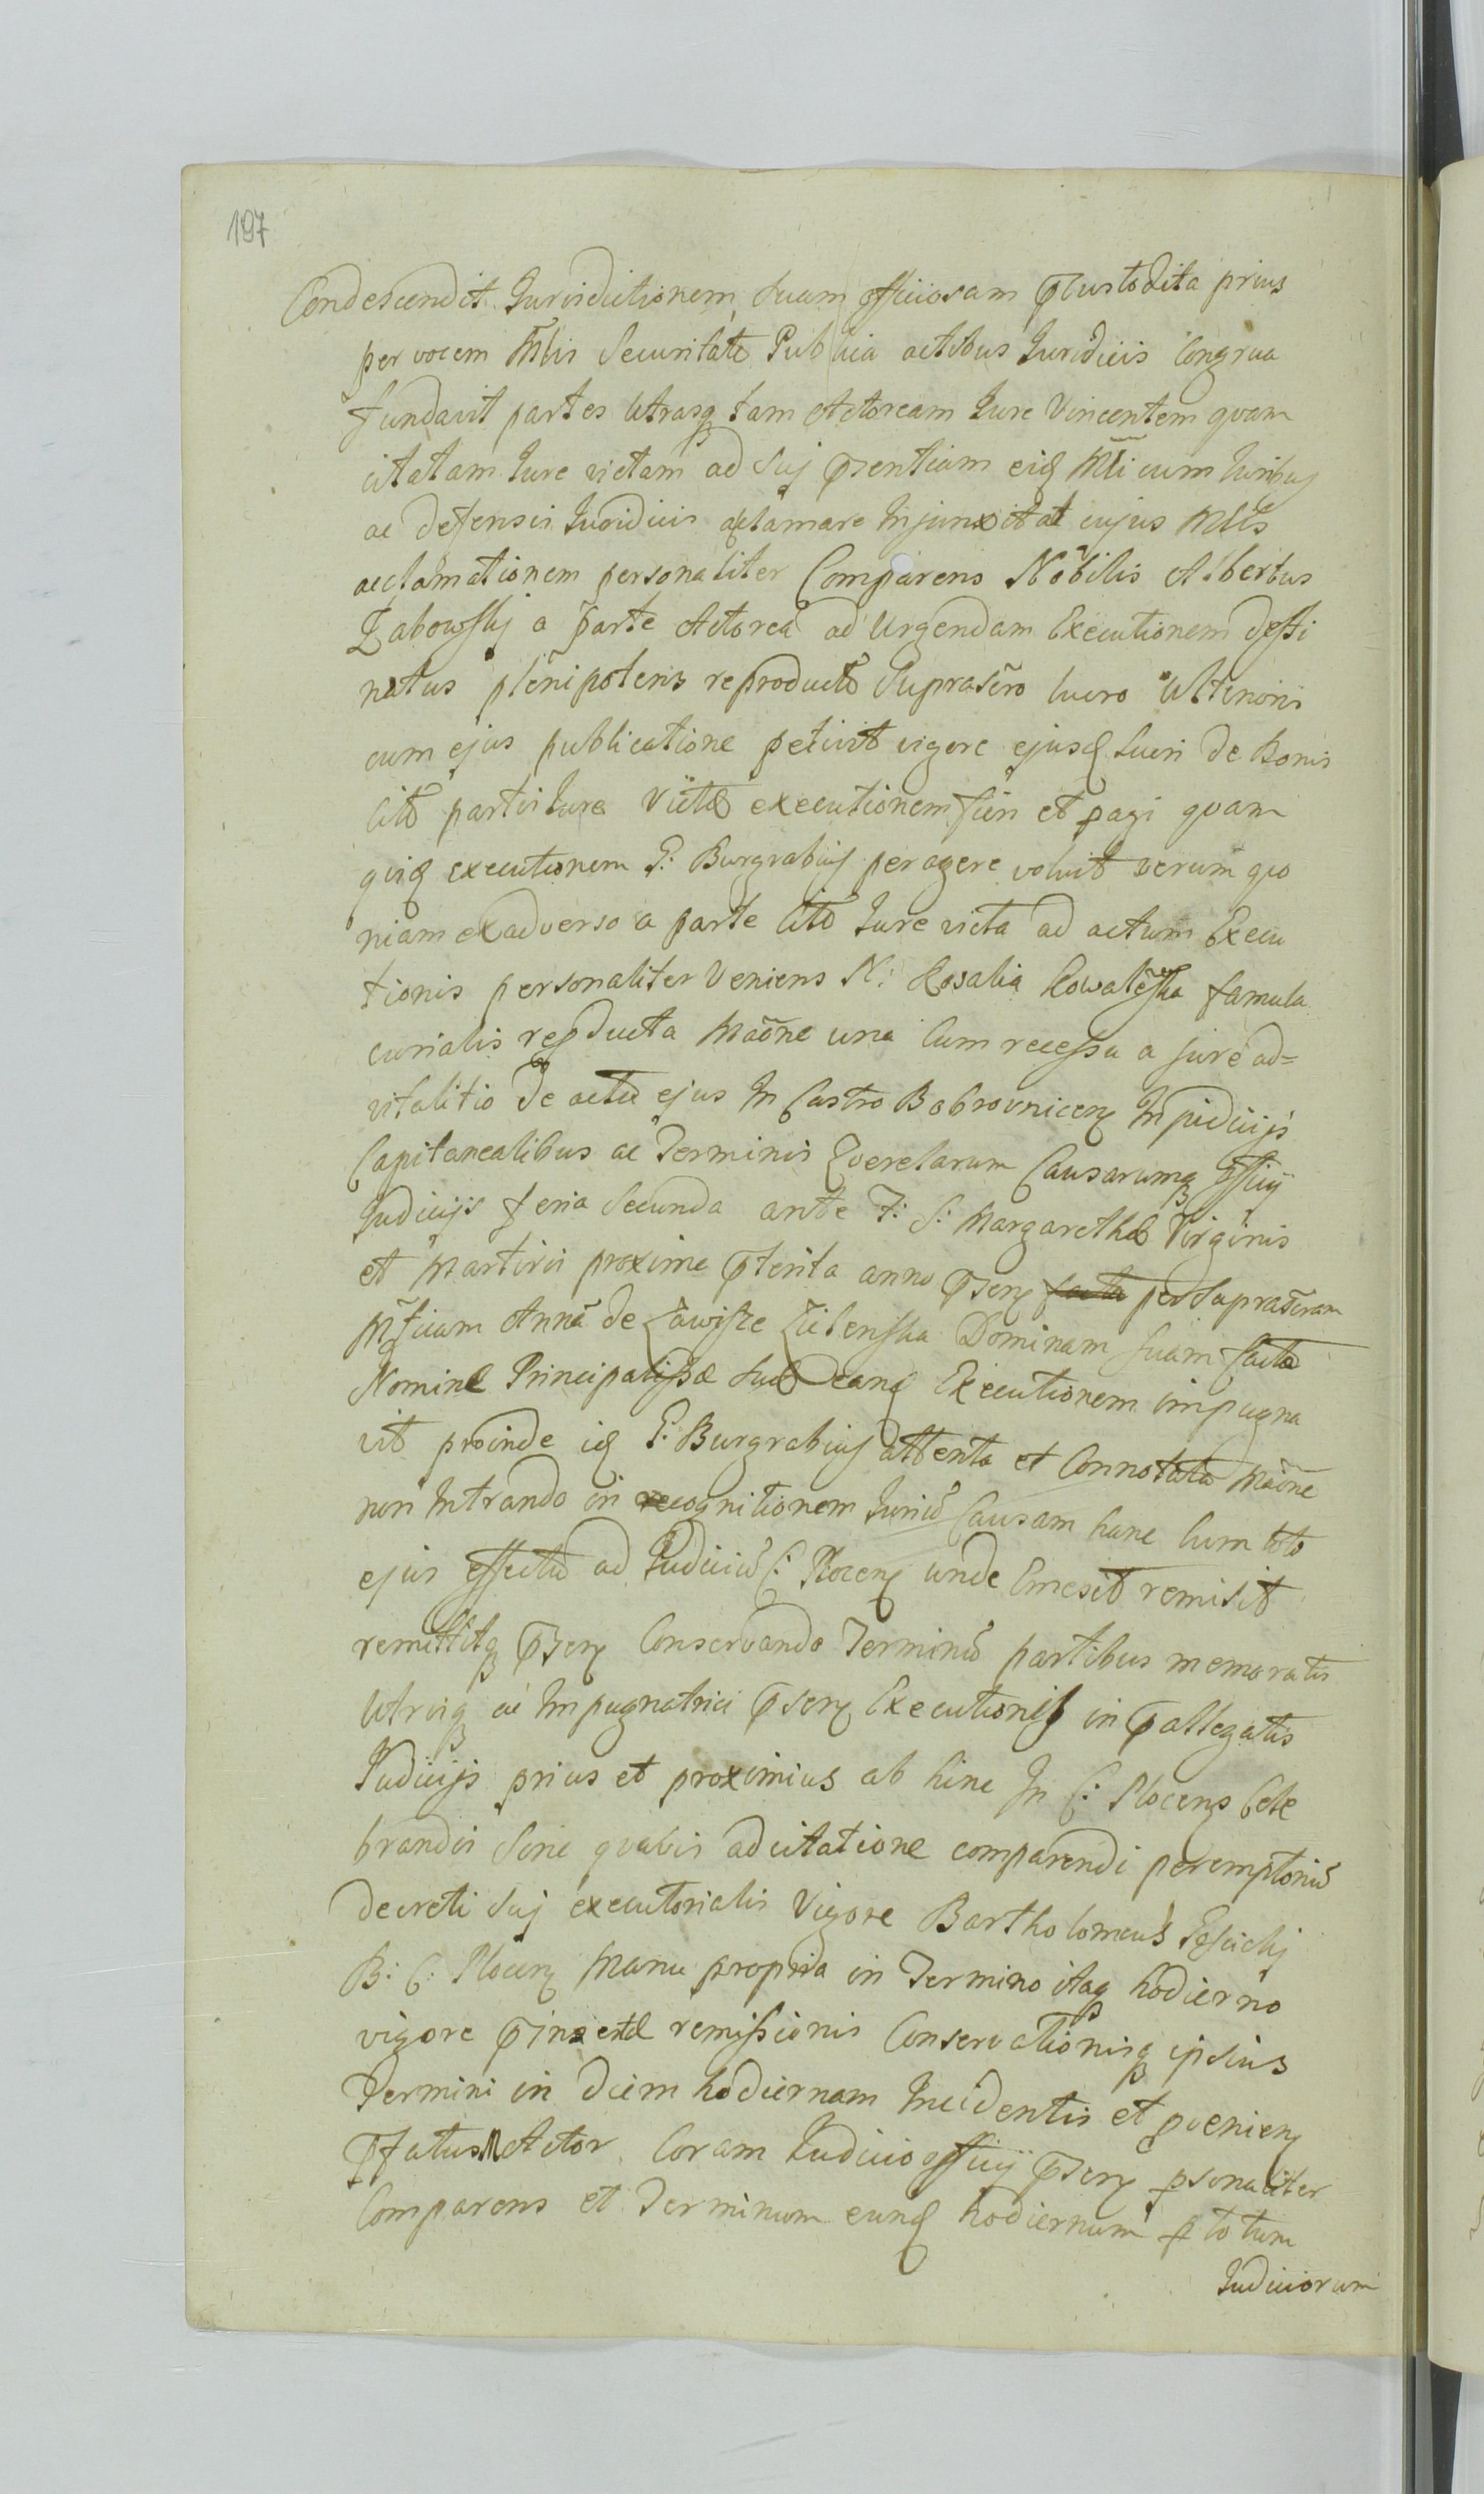 197
Condescendit Jurisdictionem suam officiosam pcustodita prius
per vocem Mlis Securitate Publica actibus Juridicis Congrua
fundavit partes Utrasq tam Actoream Jure Vincentem quam
citatam Jure victam ad sui pntiam eid Mli cum Juribus
ac defensis Juridicis acclamare Injunxit at cujus Mlis
acclamationem personaliter Comparens Nobilis Albertus
Zabowskj a parte Actorea ad Urgendam Executionem desti
natus plenipotens reproducto Suprascro lucro Ulterioris
cum ejus publicatione petivit vigore ejusd lucri de Bonis
Cito partis Jure Victæ executionem fieri et pagi quam
quid executionem P: Burgrabius peragere voluit verum quo
niam ex adverso a parte cita Jure victa ad actum Execu
tionis personaliter Veniens N: Rosalia Kowaleska famula
curialis reproducta Maone una Cum recessu a jure ad=
vitalitio de actu ejus In Castro Bobrovnicen In judicijs
Capitanealibus ac Terminis Qverelarum Causarumq officij
Judicijs feria Secunda ante F: S: Margarethæ Virginis
et Martiris proxime pterita anno psen facta per Suprascram
Mficam Annã de Zawisze Zielenska Dominam Suam facta
Nomine Principalissæ suæ eand Executionem impugna
vit proinde id P: Burgrabius attenta et Connotata Maone
non Intrando in recognitionem Juriũ Causam hanc Cum toto
ejus effectu ad Judiciũ C: Plocen unde Emesit remisit
remittitq psen Conservando Terminũ partibus memoratis
Utrisq ac Impugnatrici psen Executionis in pallegatis
Judicijs prius et proximius ab hinc In C: Plocens Cele
brandis Sine quavis adcitatione comparendi peremptoriũ
decreti sui executorialis Vigore Bartholomeus
B: C: Plocen Manu propria in Termino itaq hodierno
vigore pinsertæ remissionis Conservationisq ipsius
Termini in diem hodiernam Incidentis et pvenien
pfatus N Actor Coram Judicio officij psen psonaliter
Comparens et Terminum eund hodiernum p totum
Judiciorum